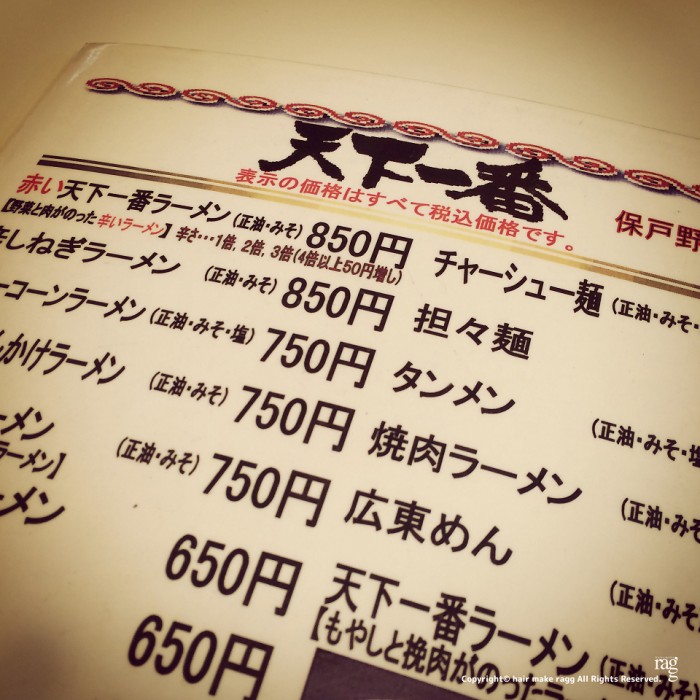 天下一番
表示の価格はすべて税込価格です。
保戸野
赤い天下一番ラーメン (正油・みそ) 850円
【野菜と肉がのった辛いラーメン】 辛さ…1倍, 2倍, 3倍(4倍以上50円増し)
しねぎラーメン (正油・みそ) 850円
ーコーンラーメン (正油・みそ・塩) 750円
かけラーメン (正油・みそ) 750円
ーメン (正油・みそ) 750円
ラーメン】
ーメン 650円
650円
チャーシュー麺 (正油・みそ・
担々麺
タンメン (正油・みそ・塩
焼肉ラーメン (正油・みそ
広東めん (正油・みそ
天下一番ラーメン (正油・みそ
【もやしと挽肉がのったラー
rag
Copyright© hair make ragg All Rights Reserved.